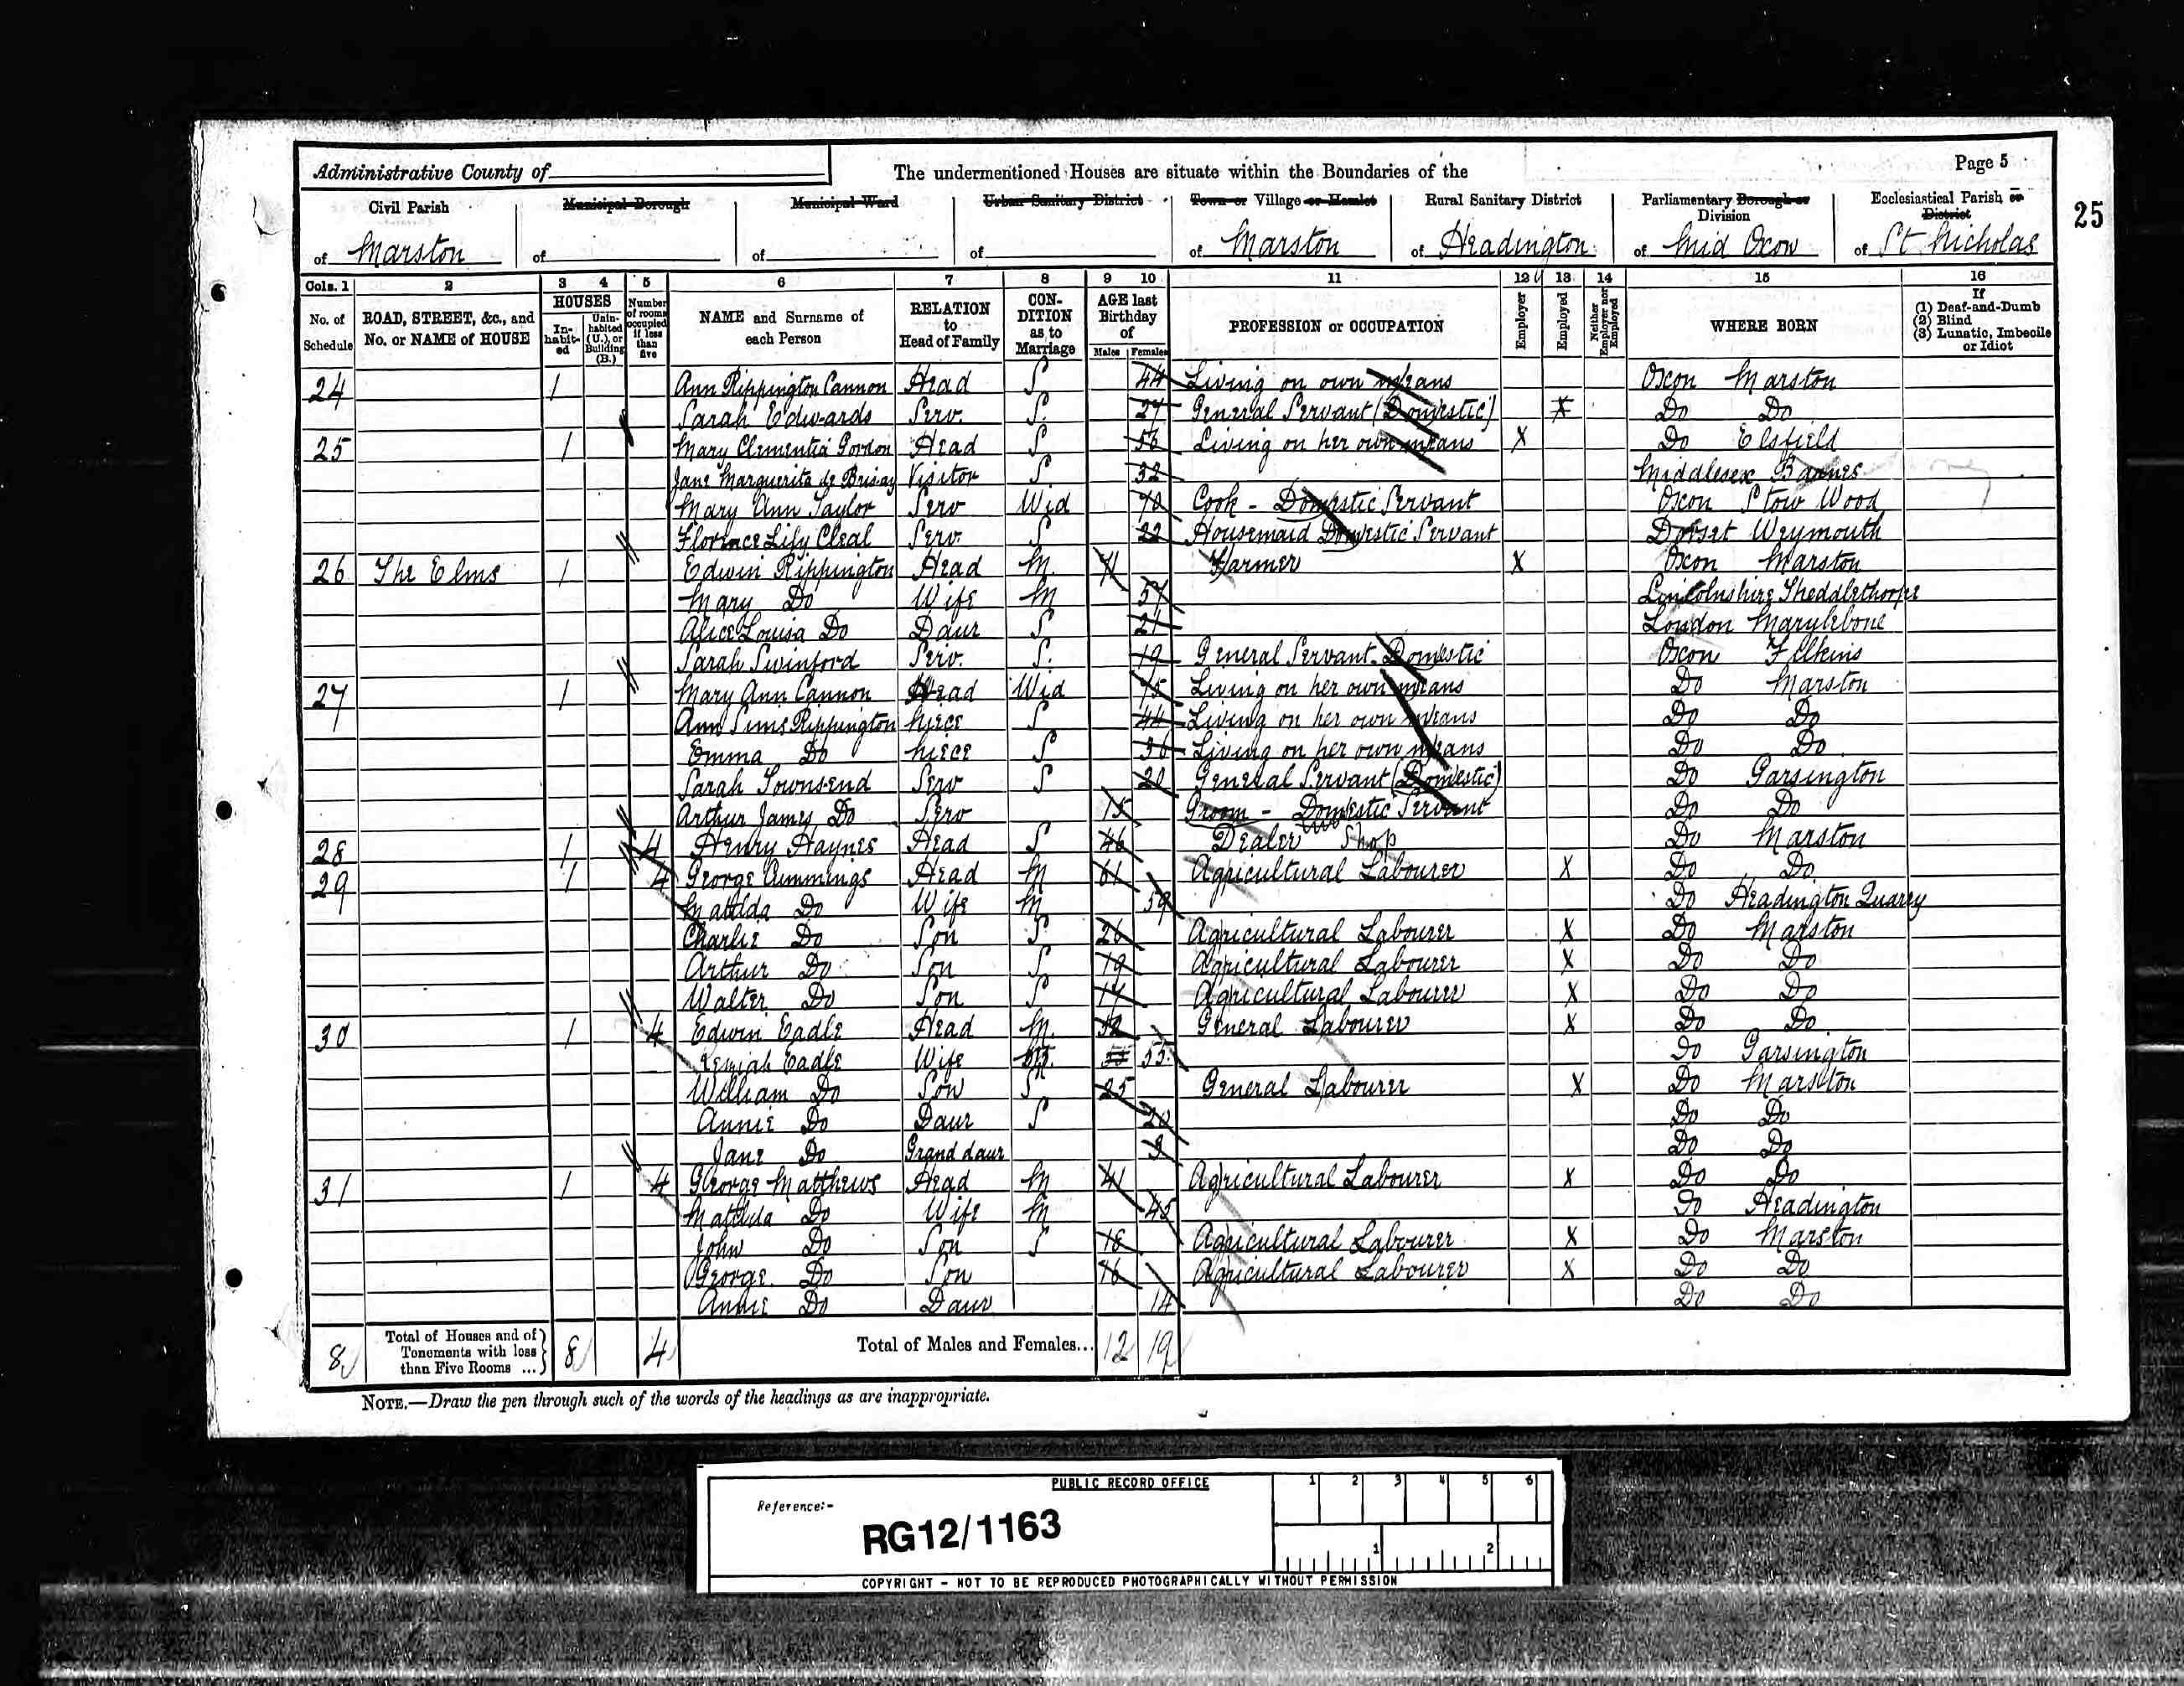 Administrative County of
The undermentioned Houses are situate within the Boundaries of the
Page 5
Civil Parish
Municipal Borough
Municipal Ward
Urban Sanitary District
Town or Village or Hamlet
Rural Sanitary District
Parliamentary Borough or Division
Ecclesiastical Parish or District
25
of Marston
of
of
of
of Marston
of Headington
of Mid Oxon
of St Nicholas
Cols. 1 2 3 4 5 6 7 8 9 10 11 12 13 14 15 16
No. of Schedule
ROAD, STREET, &c., and No. or NAME of HOUSE
HOUSES
In-habit-ed
Unin-habited (U.), or Building (B.)
Number of rooms occupied if less than five
NAME and Surname of each Person
RELATION to Head of Family
CON-DITION as to Marriage
AGE last Birthday of
Males
Females
PROFESSION or OCCUPATION
Employer
Employed
Neither Employer nor Employed
WHERE BORN
If
(1) Deaf-and-Dumb
(2) Blind
(3) Lunatic, Imbecile or Idiot
24 1 Ann Rippington Cannon Head S 44 Living on own means Oxon Marston
Sarah Edwards Serv. S. 27 General Servant (Domestic) X Do Do
25 1 Mary Clementia Gordon Head S 56 Living on her own means X Do Elsfield
Jane Marguerita de Brisay Visitor S 32 Middlesex Barnes
Mary Ann Taylor Serv Wid 70 Cook - Domestic Servant Oxon Stow Wood
Florence Lily Cleal Serv. S 22 Housemaid Domestic Servant Dorset Weymouth
26 The Elms 1 Edwin Rippington Head M. 71 Farmer X Oxon Marston
Mary Do Wife M 57 Lincolnshire Theddlethorpe
Alice Louisa Do Daur S 21 London Marylebone
Sarah Swinford Serv. S. 19 General Servant Domestic Oxon Filkins
27 1 Mary Ann Cannon Head Wid 75 Living on her own means Do Marston
Ann Sims Rippington Niece S 44 Living on her own means Do Do
Emma Do Niece S 36 Living on her own means Do Do
Sarah Townsend Serv S 20 General Servant (Domestic) Do Garsington
Arthur James Do Serv 15 Groom - Domestic Servant Do Do
28 1 4 Henry Haynes Head S 46 Dealer Shop Do Marston
29 1 4 George Cummings Head M 61 Agricultural Labourer X Do Do
Matilda Do Wife M 59 Do Headington Quarry
Charlie Do Son S 26 Agricultural Labourer X Do Marston
Arthur Do Son S 19 Agricultural Labourer X Do Do
Walter Do Son S 17 Agricultural Labourer X Do Do
30 1 4 Edwin Eadle Head M. 52 General Labourer X Do Do
Keziah Eadle Wife M. 55 Do Garsington
William Do Son S 25 General Labourer X Do Marston
Annie Do Daur S 20 Do Do
Jane Do Grand daur 3 Do Do
31 1 4 George Matthews Head M 41 Agricultural Labourer X Do Do
Matilda Do Wife M 45 Do Headington
John Do Son S 18 Agricultural Labourer X Do Marston
George Do Son 16 Agricultural Labourer X Do Do
Annie Do Daur 14 Do Do
8 Total of Houses and of Tenements with less than Five Rooms ... 8 4 Total of Males and Females... 12 19
NOTE.—Draw the pen through such of the words of the headings as are inappropriate.
PUBLIC RECORD OFFICE
Reference:-
RG12/1163
1 2 3 4 5 6
1 2
COPYRIGHT - NOT TO BE REPRODUCED PHOTOGRAPHICALLY WITHOUT PERMISSION